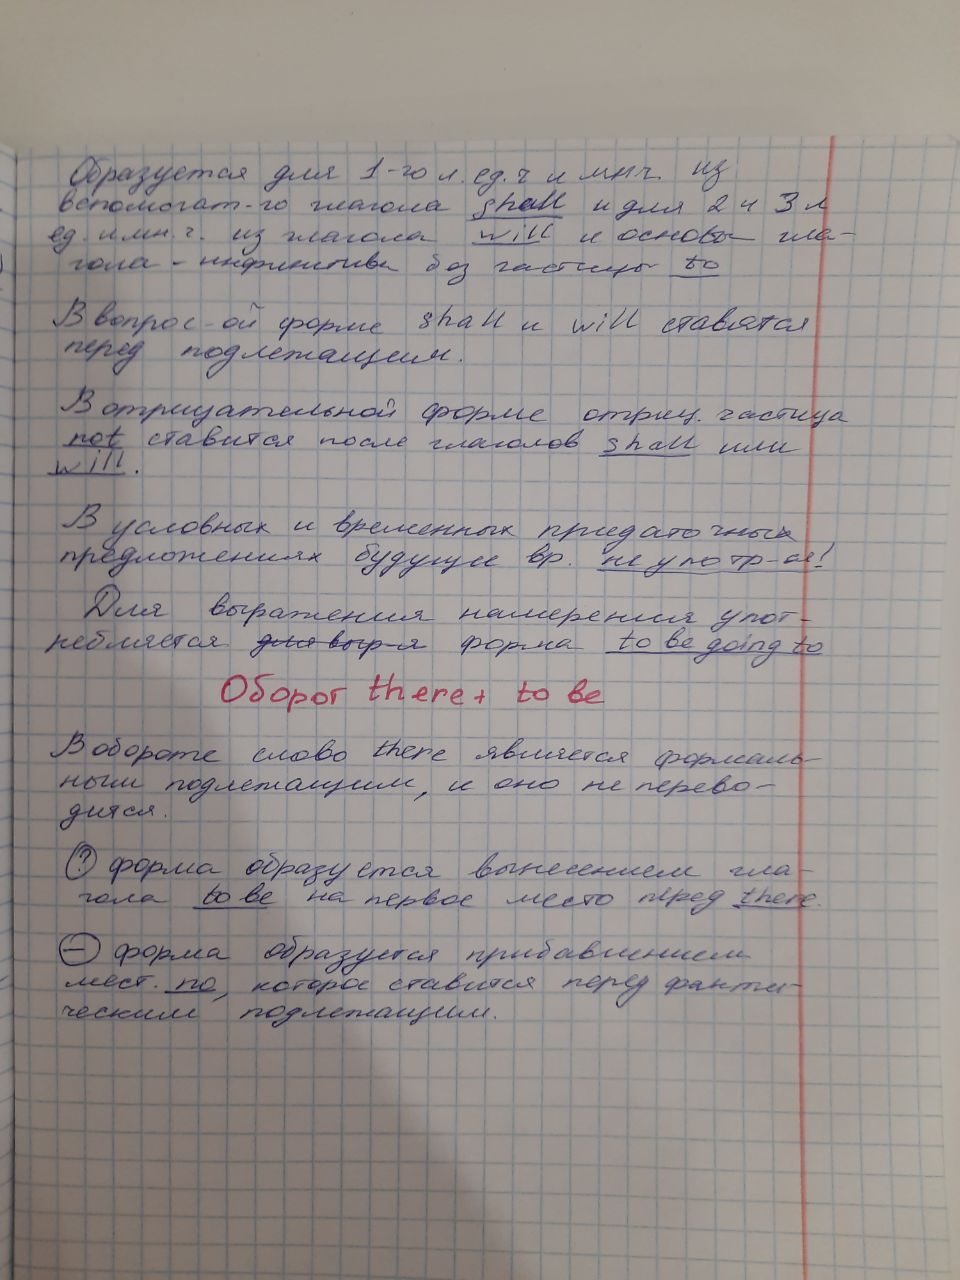 Образуется для 1-го л. ед. ч и мн.ч. из
вспомогат-го глагола shall и для 2 и 3 л
ед. и мн. ч. из глагола will и основы гла-
гола - инфинитива без частицы to
В вопрос-ой форме shall и will ставятся
перед подлежащим.
В отрицательной форме отриц. частица
not ставится после глаголов shall или
will.
В условных и временных придаточных
предложениях будущее вр. не употр-ся!
Для выражения намерения упот-
ребляется для выр-я форма to be going to
Оборот there + to be
В обороте слово there является формаль-
ным подлежащим, и оно не перево-
дится.
? форма образуется вынесением гла-
гола to be на первое место перед there.
– форма образуется прибавлением
мест. no, которое ставится перед факти-
ческим подлежащим.